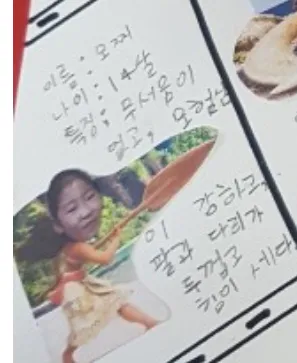 이름: 모찌
나이: 14살
특징: 무서움이
없고, 모험심
이 강하고,
팔과 다리가
두껍고
힘이 세다